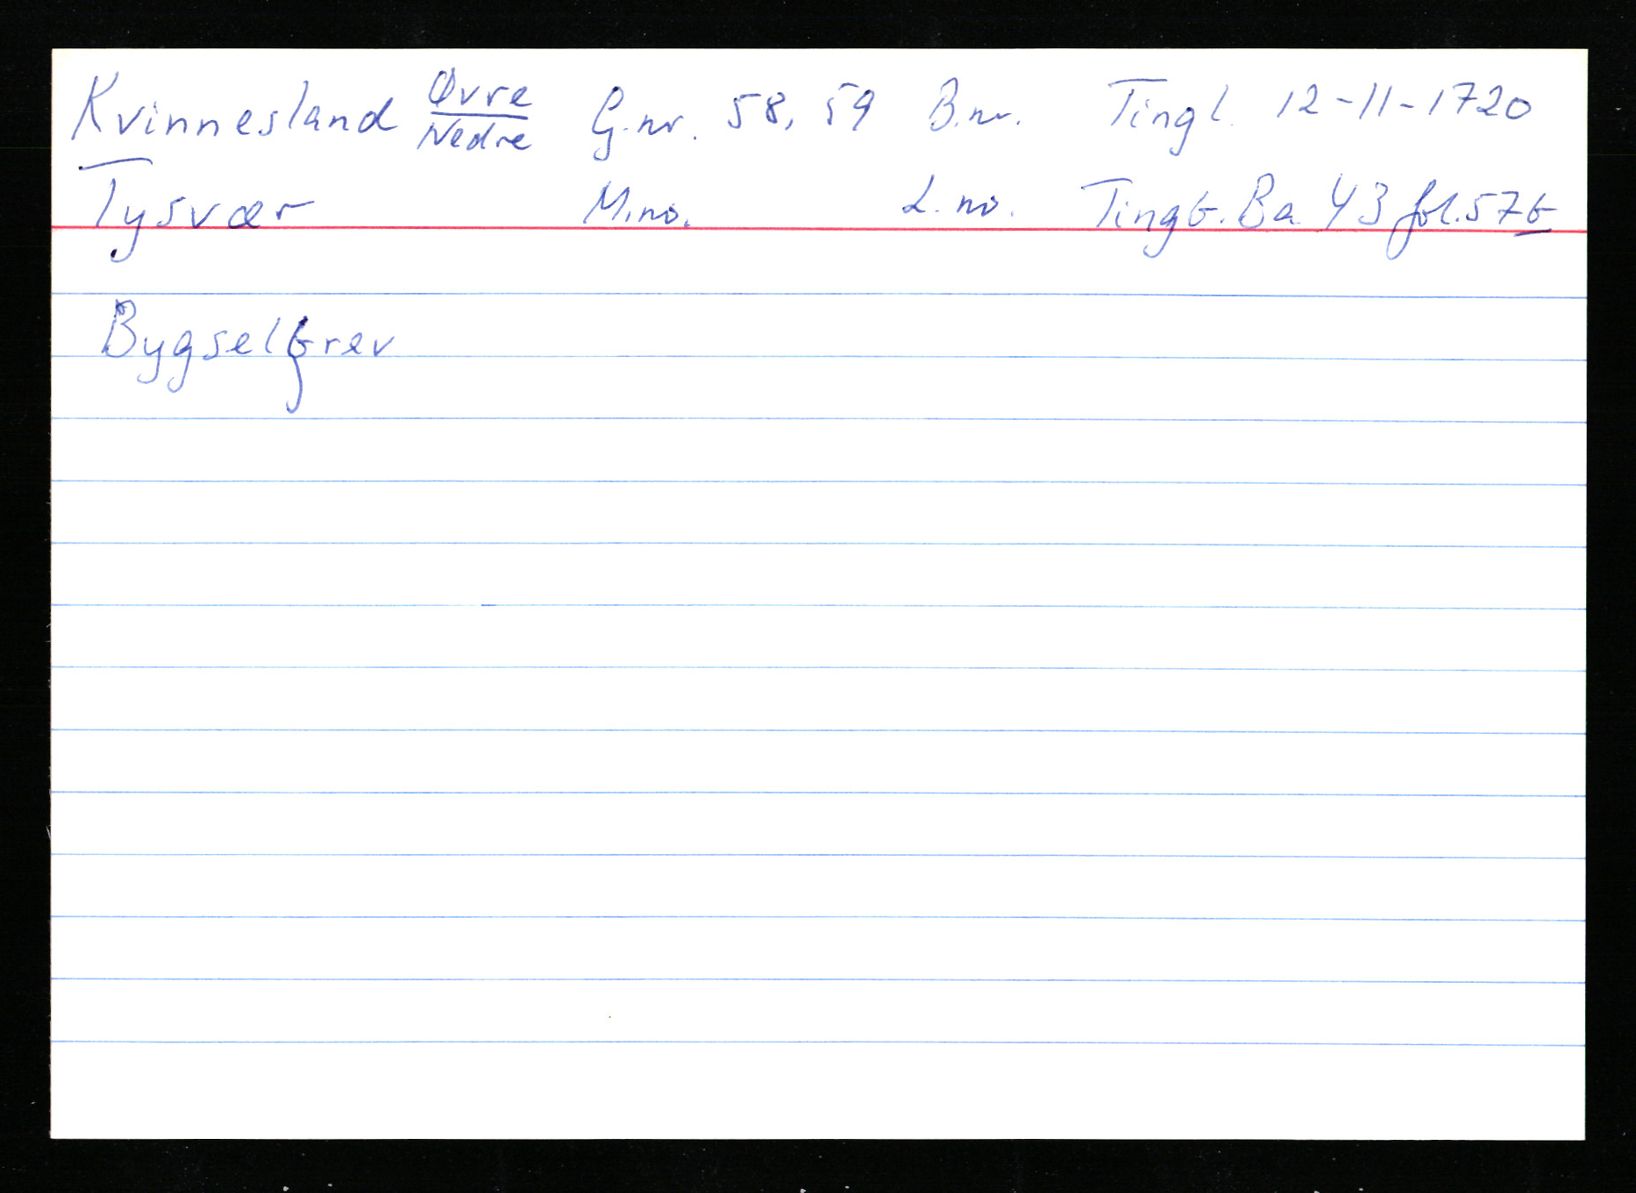 Kvinnesland Øvre/Nedre G.nr. 58, 59 B.nr. Tingl. 12-11-1720
Tysvær M.no. L.no. Tingb. Ba 43 fol. 57b
Bygselbrev